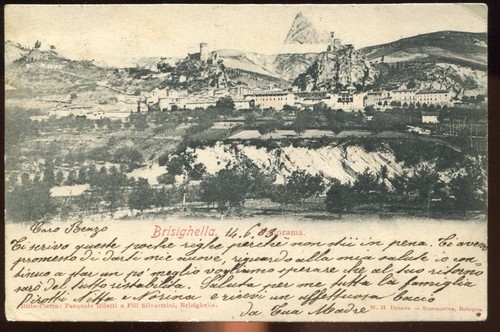 Brisighella. 14.6.03 Panorama.
Caro Renzo
Ti scrivo queste poche righe perchè non stii in pena. Ti avevo
promesso di darti mie nuove, riguardo alla mia salute io con-
tinuo a star un po' meglio vogliamo sperare che al tuo ritorno
sarò del tutto ristabilita. Saluta per me tutta la famiglia
Pirotti Nitta e Norina e ricevi un affettuoso bacio
da Tua Madre
Ditte-Pietra: Pasquale Bilotti e Flli Silvestrini, Brisighella.
Bologna.